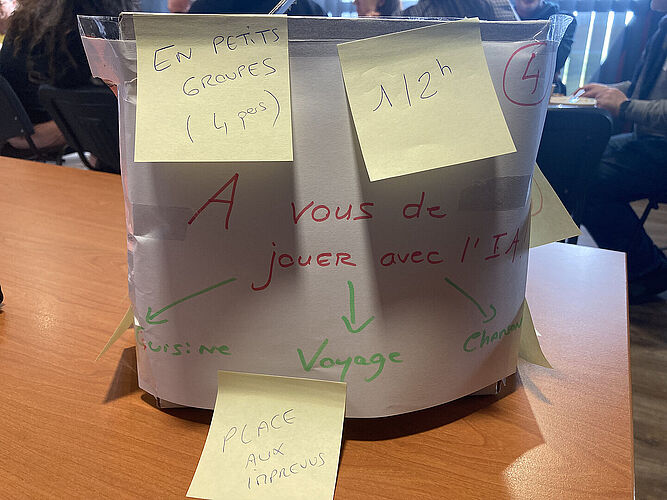 EN PETITS
GROUPES
(4 pers)
1/2h
4
A vous de
jouer avec l'IA
Cuisine
Voyage
Chanson
PLACE
AUX
IMPREVUS